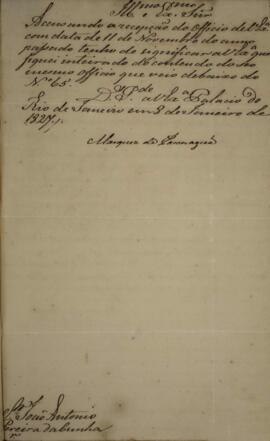 Illmo e Exmo
Sr.
Accusando a recepção do Officio de V. Exa
com data de 11 de Novembro do anno
passado tenho de significar a V. Exa que
fiquei inteirado do contendo do seo
mesmo Officio que veio debaixo do
No 65.
D. G. de a V. Exa Palacio do
Rio de Janeiro em 3 de Janeiro de
1827.
Marquez de
Sr. João Antonio
Pereira da Cunha